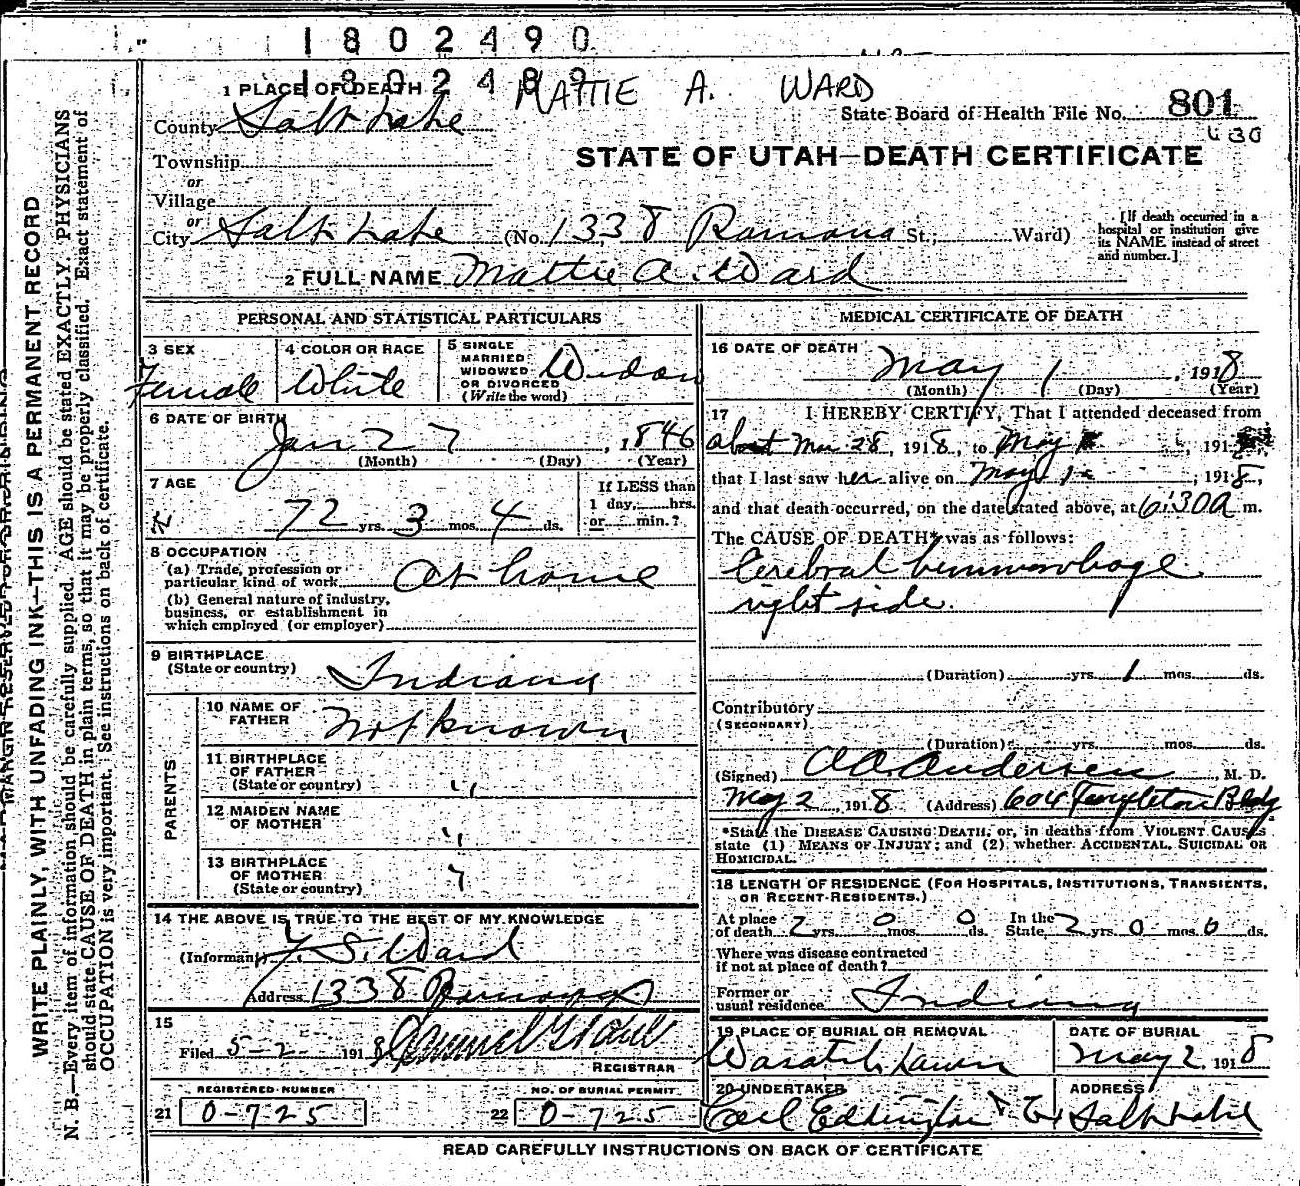 1802490
1802489
MATTIE A. WARD
1 PLACE OF DEATH
County Salt Lake
State Board of Health File No. 801
430
Township
or
Village
or
City Salt Lake (No. 1338 Ramona St.; Ward)
STATE OF UTAH—DEATH CERTIFICATE
[If death occurred in a
hospital or institution give
its NAME instead of street
and number.]
2 FULL NAME Mattie A. Ward
PERSONAL AND STATISTICAL PARTICULARS
3 SEX
Female
4 COLOR OR RACE
White
5 SINGLE
MARRIED
WIDOWED
OR DIVORCED
(Write the word)
Widow
6 DATE OF BIRTH
Jan 27, 1846
(Month) (Day) (Year)
7 AGE
72 yrs. 3 mos. 4 ds.
If LESS than
1 day, hrs.
or min.?
8 OCCUPATION
(a) Trade, profession or
particular kind of work At home
(b) General nature of industry,
business, or establishment in
which employed (or employer)
9 BIRTHPLACE
(State or country) Indiana
PARENTS
10 NAME OF
FATHER Not known
11 BIRTHPLACE
OF FATHER
(State or country) "
12 MAIDEN NAME
OF MOTHER "
13 BIRTHPLACE
OF MOTHER
(State or country) "
14 THE ABOVE IS TRUE TO THE BEST OF MY KNOWLEDGE
(Informant) S. Ward
Address 1338 Ramona
15
Filed 5-2- 1918
REGISTRAR
REGISTERED NUMBER
21 0-725
NO. OF BURIAL PERMIT
22 0-725
MEDICAL CERTIFICATE OF DEATH
16 DATE OF DEATH
May 1, 1918
(Month) (Day) (Year)
17 I HEREBY CERTIFY, That I attended deceased from
about Mar 28, 1918, to May 191
that I last saw her alive on May 1, 1918,
and that death occurred, on the date stated above, at 6:30 a m.
The CAUSE OF DEATH* was as follows:
Cerebral hemmorhage
right side.
(Duration) yrs. 1 mos. ds.
Contributory
(SECONDARY)
(Duration) yrs. mos. ds.
(Signed) Andersen, M. D.
May 2, 1918 (Address) 604 Templeton Bldg
*State the DISEASE CAUSING DEATH, or, in deaths from VIOLENT CAUSES
state (1) MEANS OF INJURY; and (2) whether ACCIDENTAL, SUICIDAL OR
HOMICIDAL.
18 LENGTH OF RESIDENCE (FOR HOSPITALS, INSTITUTIONS, TRANSIENTS,
OR RECENT RESIDENTS.)
At place
of death 2 yrs. 0 mos. 0 ds. In the
State 2 yrs. 0 mos. 0 ds.
Where was disease contracted
if not at place of death?
Former or
usual residence Indiana
19 PLACE OF BURIAL OR REMOVAL
Wasatch Lawn
DATE OF BURIAL
May 2, 1918
20 UNDERTAKER
ADDRESS
Salt Lake
READ CAREFULLY INSTRUCTIONS ON BACK OF CERTIFICATE
WRITE PLAINLY, WITH UNFADING INK—THIS IS A PERMANENT RECORD
N. B.—Every item of information should be carefully supplied. AGE should be stated EXACTLY. PHYSICIANS
should state CAUSE OF DEATH in plain terms, so that it may be properly classified. Exact statement of
OCCUPATION is very important. See instructions on back of certificate.